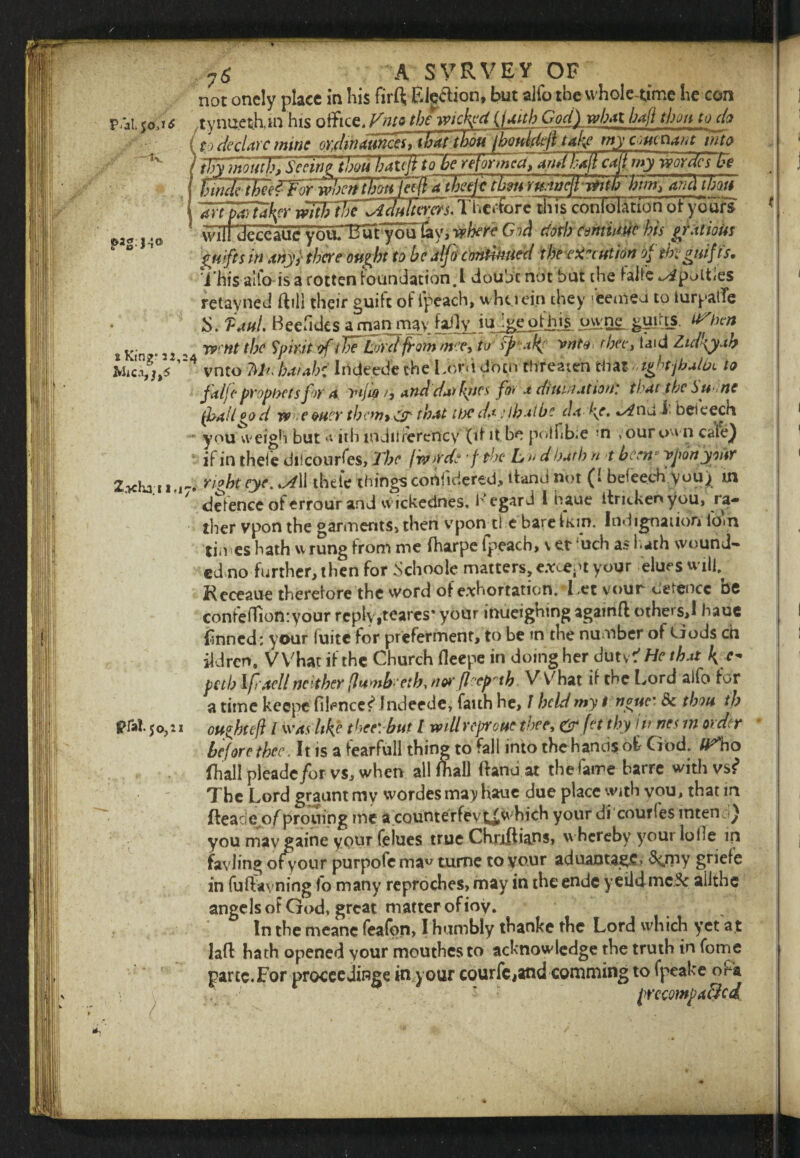 76 A SVRVEY OF
not onely place in his firſt Election, but alſo the whole time he con
tynueth in his office. Vnto the wicked (ſaith God) what haſt thou to do
to declare mine ordinaunces, that thou ſhouldeſt take my couenant into
thy mouth, Seeing thou hateſt to be reformed, and haſt caſt my wordes be
hinde thee? For when thou ſeeſt a theeſe thou runneſt with him, and thou
art partaker with the Adulterers. Therfore this conſolation of yours
will deceaue you. But you ſay, where God doth continue his gratious
guifts in any, there ought to be alſo continued the execution of the guifts.
This alſo is a rotten foundation. I doubt not but the falſe Apoſtles
retayned ſtill their guift of ſpeach, wherein they ſeemed to ſurpaſſe
S. Paul. Beeſides a man may falſly iudge of his owne guifts. When
went the Spirit of the Lord from mee, to ſpeake vnto thee, ſaid Zidkyah
vnto Michaiah? Indeede the Lord doth threaten that night ſhalbe to
falſe prophets for a viſion, and darknes for a diuination: that the Sunne
ſhall go d wne ouer them, & that the day ſhalbe darke. And I beſeech
you weigh but with indifferency (if it be poſſible in your own caſe)
if in theſe diſcourſes, The ſworde of the Lord hath not beene vpon your
right eye. All theſe things conſidered, ſtand not (I beſeech you) in
defence of errour and wickednes. Regard I haue ſtricken you, ra-
ther vpon the garments, then vpon the bare ſkin. Indignation ſom
times hath wrung from me ſharpe ſpeach, yet ſuch as hath wound-
ed no further, then for Schoole matters, except your ſelues will.
Receaue therefore the word of exhortation. Let your defence be
confeſſion: your reply, teares: your inueighing againſt others, I haue
ſinned: your ſuite for preferment, to be in the number of Gods ch
ildren. VVhat if the Church ſleepe in doing her duty? He that kee-
peth Iſraell neither ſlumbreth, nor ſleepeth. VVhat if the Lord alſo for
a time keepe ſilence? Indeede, ſaith he, I held my tongue: & thou th
oughteſt I was like thee: but I will reproue thee, & ſet thy ſinnes in order
before thee. It is a fearfull thing to fall into the hands of God. Who
ſhall pleade for vs, when all ſhall ſtand at the ſame barre with vs?
The Lord graunt my wordes may haue due place with you, that in
ſteade of prouing me a counterfeyt (which your diſcourſes intend)
you may gaine your ſelues true Chriſtians, whereby your loſſe in
fayling of your purpoſe may turne to your aduantage, & my griefe
in ſuſtayning ſo many reproches, may in the ende yeild me & all the
angels of God, great matter of ioy.
In the meane ſeaſon, I humbly thanke the Lord which yet at
laſt hath opened your mouthes to acknowledge the truth in ſome
parte. For proceedinge in your courſe, and comming to ſpeake of a
precompacted
Pſal. 50,16
pag: 140
1 King. 22,24
Mica, 3,5
Zacha: 11,17.
Pſal. 50,21